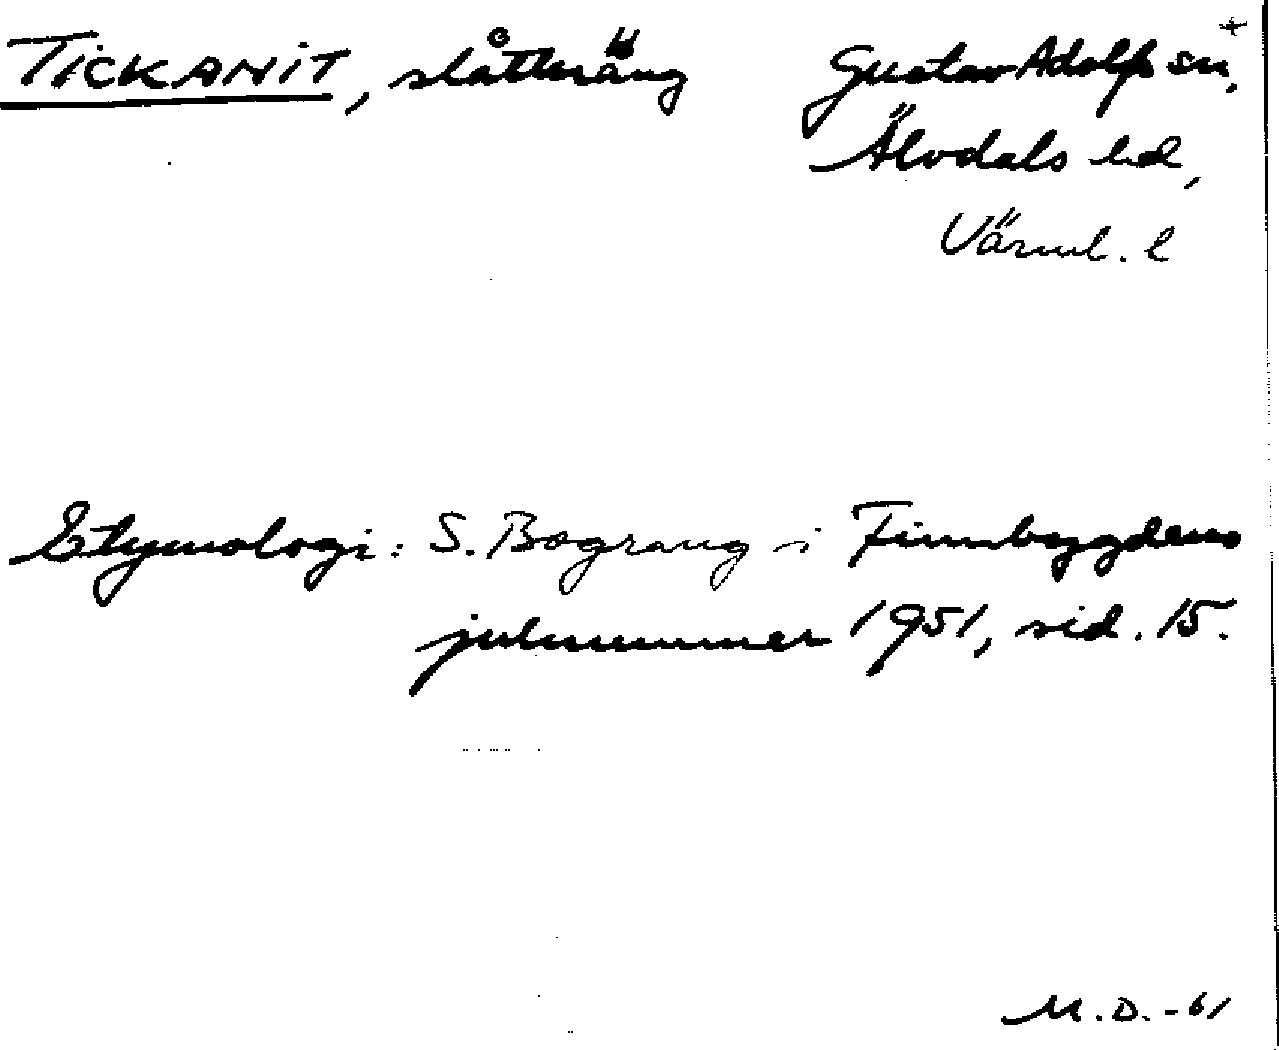 TICKANIT, slåtteräng
Gustav Adolfs sn,
Älvdals hd,
Värml. l
Etymologi: S. Bograng i Finnbygdens
julnummer 1951, sid. 15.
M.D. -61